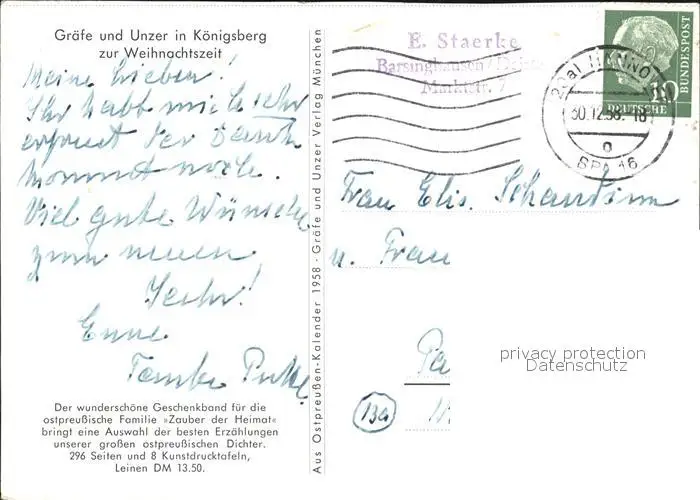 Gräfe und Unzer in Königsberg
zur Weihnachtszeit
Meine Lieben!
Ihr habt mich sehr
erfreut der Dank
kommt noch.
Viel gute Wünsche
zum neuen
Jahr!
Eure
Tante
Der wunderschöne Geschenkband für die
ostpreußische Familie »Zauber der Heimat«
bringt eine Auswahl der besten Erzählungen
unserer großen ostpreußischen Dichter.
296 Seiten und 8 Kunstdrucktafeln,
Leinen DM 13.50.
Aus Ostpreußen-Kalender 1958 · Gräfe und Unzer Verlag München
E. Staerke
Barsinghausen / Deister
Marktstr. 7
HANNO
30.12.58.-18
a
BPA 16
10
DEUTSCHE
BUNDESPOST
Frau Elis.
u. Frau
13a
privacy protection
Datenschutz